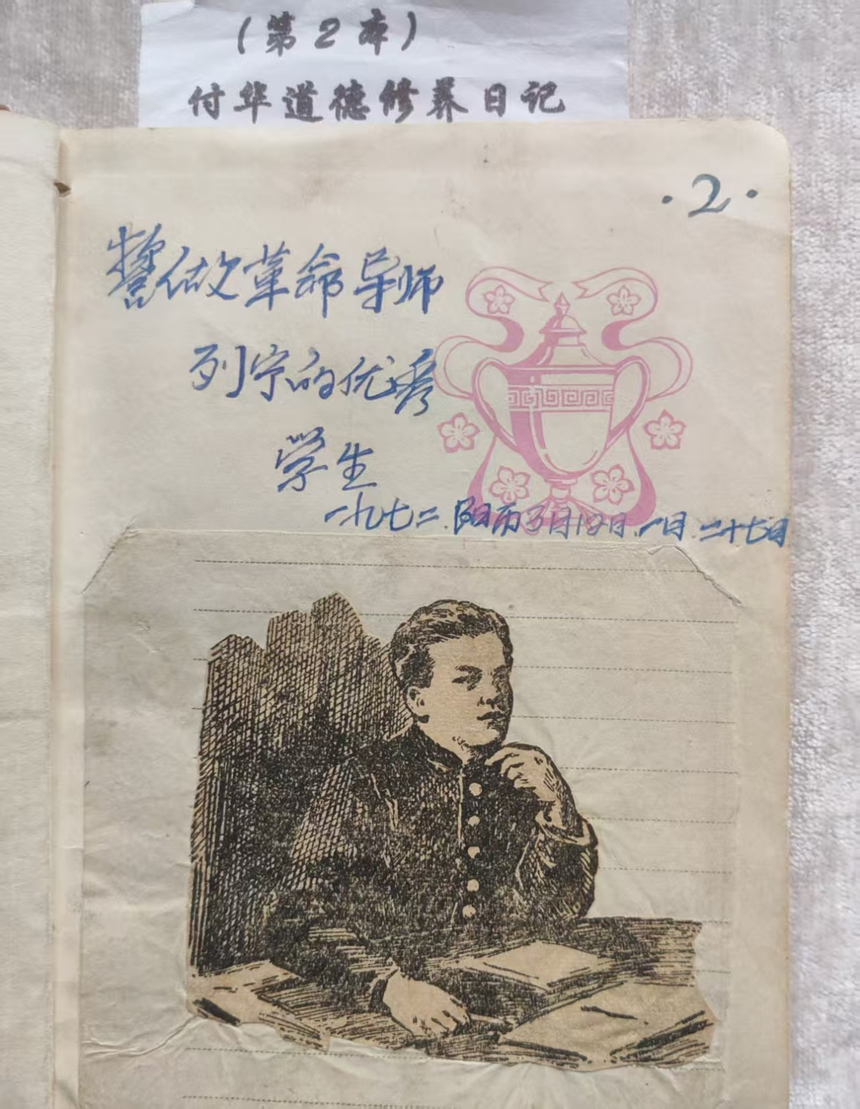 （第2本）
付华道德修养日记
·2·
誓做革命导师
列宁的优秀
学生
一九七二.阳历3月12日.一月.二十七日